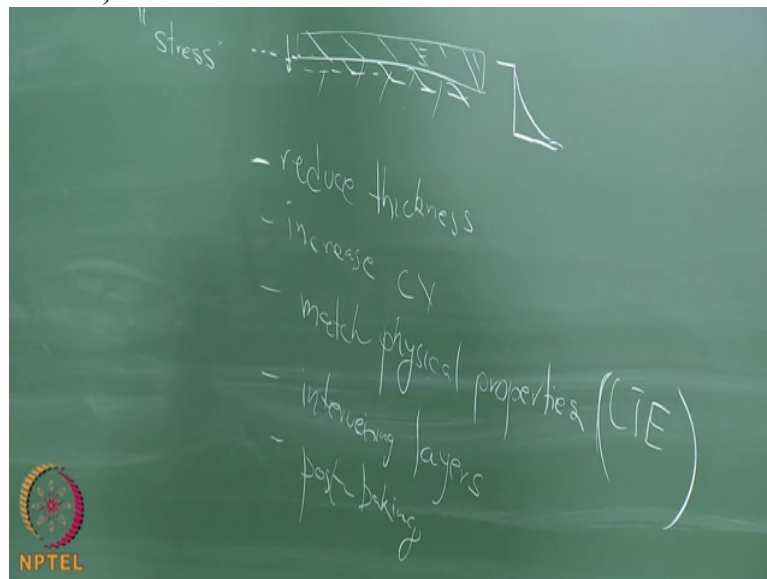 "stress"
- reduce thickness
- increase CV
- match physical properties (CTE)
- intervening layers
- post baking
NPTEL